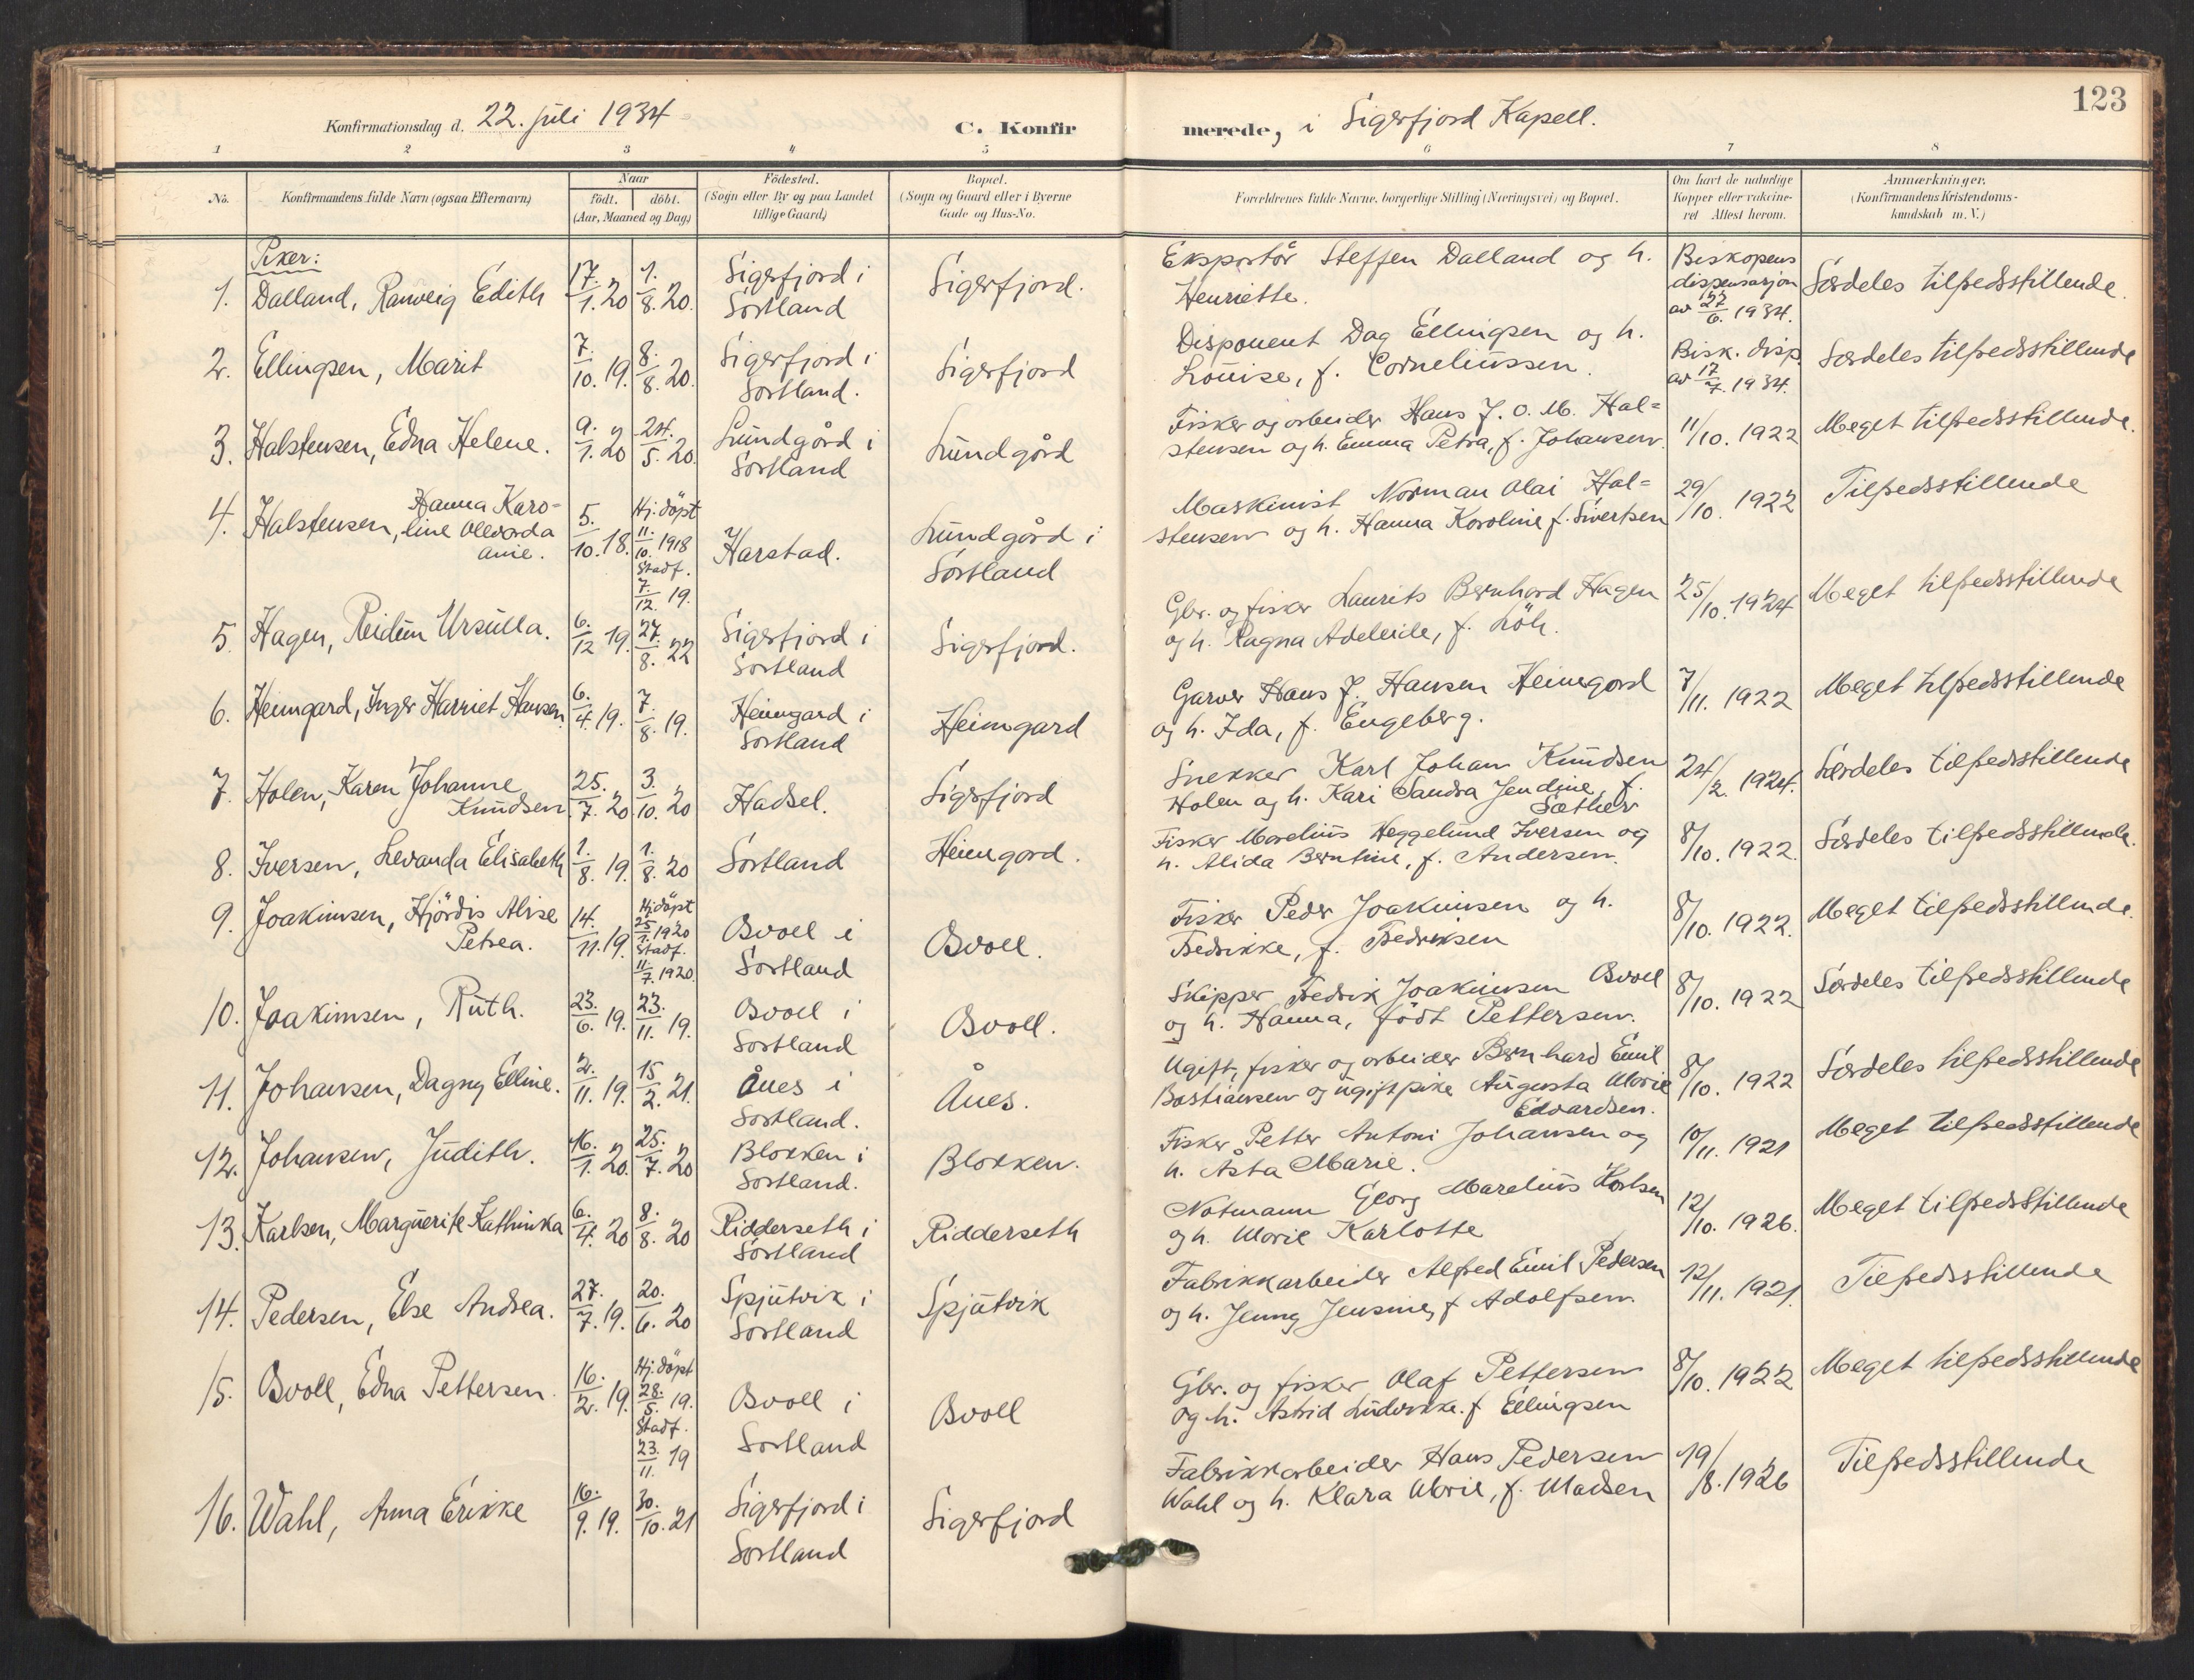 123
Konfirmationsdag d. 22. juli 1934
C. Konfir
merede, i Sigerfjord Kapell.
1 2 3 4 5 6 7 8
No.
Konfirmandens fulde Navn (ogsaa Efternavn)
Naar
födt. döbt.
(Aar, Maaned og Dag)
Födested.
(Sogn eller By og paa Landet
tillige Gaard)
Bopæl.
(Sogn og Gaard eller i Byerne
Gade og Hus-No.
Forældrenes fulde Navne, borgerlige Stilling (Næringsvei) og Bopæl.
Om havt de naturlige
Kopper eller vakcine-
ret Attest herom.
Anmærkninger.
(Konfirmandens Kristendoms-
kundskab m. V.)
Piker:
1. Dalland, Ranveig Edith 17./1. 20 1./8. 20. Sigerfjord i
Sortland
Sigerfjord.
Eksportör Steffen Dalland og h.
Henriette.
Biskopens
dispensasjon
av 27/6. 1934.
Særdeles tilfredsstillende.
2. Ellingsen, Marit 7./10. 19. 8./8. 20. Sigerfjord i
Sortland.
Sigerfjord
Disponent Dag Ellingsen og h.
Louise, f. Corneliussen.
Bisk. disp.
av 17/7. 1934.
Særdeles tilfredsstillende
3. Halstensen, Edna Helene. 9./1. 20 24./5. 20. Lundgård i
Sortland
Lundgård
Fisker og arbeider Hans J. O. M. Hal=
stensen og h. Emma Petra, f. Johansen.
11/10. 1922
Meget tilfredsstillende.
4. Halstensen, Hanna Karo=
line Allvarda
Anie.
5./10. 18. Hj. döpt
11./10. 1918
Stadf.
7./12. 19.
Harstad.
Lundgård i
Sortland
Maskinist Norman Olai Hal=
stensen og h. Hanna Karoline f. Sivertsen
29/10. 1922
Tilfredsstillende
5. Hagen, Reidun Ursulla. 6./12 19. 27./8. 22 Sigerfjord i
Sortland
Sigerfjord.
Gbr. og fisker Laurits Bernhard Hagen
og h. Ragna Adeleide, f. Löh.
25/10. 1924
Meget tilfredsstillende
6. Heimgard, Inger Harriet Hansen 6./4. 19. 7./8. 19. Heimgard i
Sortland
Heimgard
Garver Hans J. Hansen Heimgard
og h. Ida, f. Engeberg.
7/11. 1922
Meget tilfredsstillende
7. Holen, Karen Johanne
Knudsen
25./7. 20. 3./10. 20 Hadsel.
Sigerfjord
Snekker Karl Johan Knudsen
Holen og h. Kari Sandra Jendine, f.
Sæther
24/2. 1924.
Særdeles tilfredsstillende
8. Iversen, Levanda Elisabeth 1./8. 19. 1./8. 20 Sortland
Heimgard.
Fisker Marelius Heggelund Iversen og
h. Alida Berntine, f. Andersen.
8/10. 1922.
Særdeles tilfredsstillende.
9. Joakimsen, Hjördis Alise
Petrea.
14./11. 19. Hj. döpt
25/1. 1920
Stadf.
11./7. 1920
Osvoll i
Sortland
Osvoll.
Fisker Peder Joakimsen og h.
Fredrikke, f. Fredriksen
8/10. 1922.
Meget tilfredsstillende.
10. Joakimsen, Ruth. 23./6. 19. 23./11. 19. Osvoll i
Sortland
Osvoll.
Skipper Fredrik Joakimsen Osvoll
og h. Hanna, födt Pettersen.
8/10. 1922
Særdeles tilfredsstillende
11. Johansen, Dagny Elline. 2./11. 19. 15/2. 21. Ånes i
Sortland.
Ånes.
Ugift, fisker og arbeider Bernhard Emil
Bastiansen og ugift pike Augusta Marie
Edvardsen.
8/10. 1922
Særdeles tilfredsstillende
12. Johansen, Judith. 16./1. 20. 25./7. 20 Blokken i
Sortland.
Blokken.
Fisker Petter Antoni Johansen og
h. Åsta Marie.
10/11. 1921
Meget tilfredsstillende
13. Karlsen, Marguerite Kathinka 6./4. 20 8./8. 20 Ridderseth i
Sortland
Ridderseth
Notmann Georg Marelius Karlsen
og h. Marie Karlotte
12/10. 1926.
Meget tilfredsstillende
14. Pedersen, Else Andrea. 27./7. 19. 20./6. 20 Spjutvik i
Sortland
Spjutvik
Fabrikkarbeider Alfred Emil Pedersen
og h. Jenny Jensine, f. Adolfsen.
12/11. 1921.
Tilfredsstillende
15. Osvoll, Edna Pettersen. 16./2. 19. Hj. döpt
28./5. 19.
Stadf.
23./11. 19
Osvoll i
Sortland
Osvoll
Gbr. og fisker Olaf Pettersen
og h. Astrid Ludvikke. f Ellingsen
8/10. 1922
Meget tilfredsstillende
16. Wahl, Anna Erikke 16./9. 19. 30./10. 21 Sigerfjord i
Sortland
Sigerfjord
Fabrikkarbeider Hans Pedersen
Wahl og h. Klara Marie, f. Madsen
19/8. 1926
Tilfredsstillende